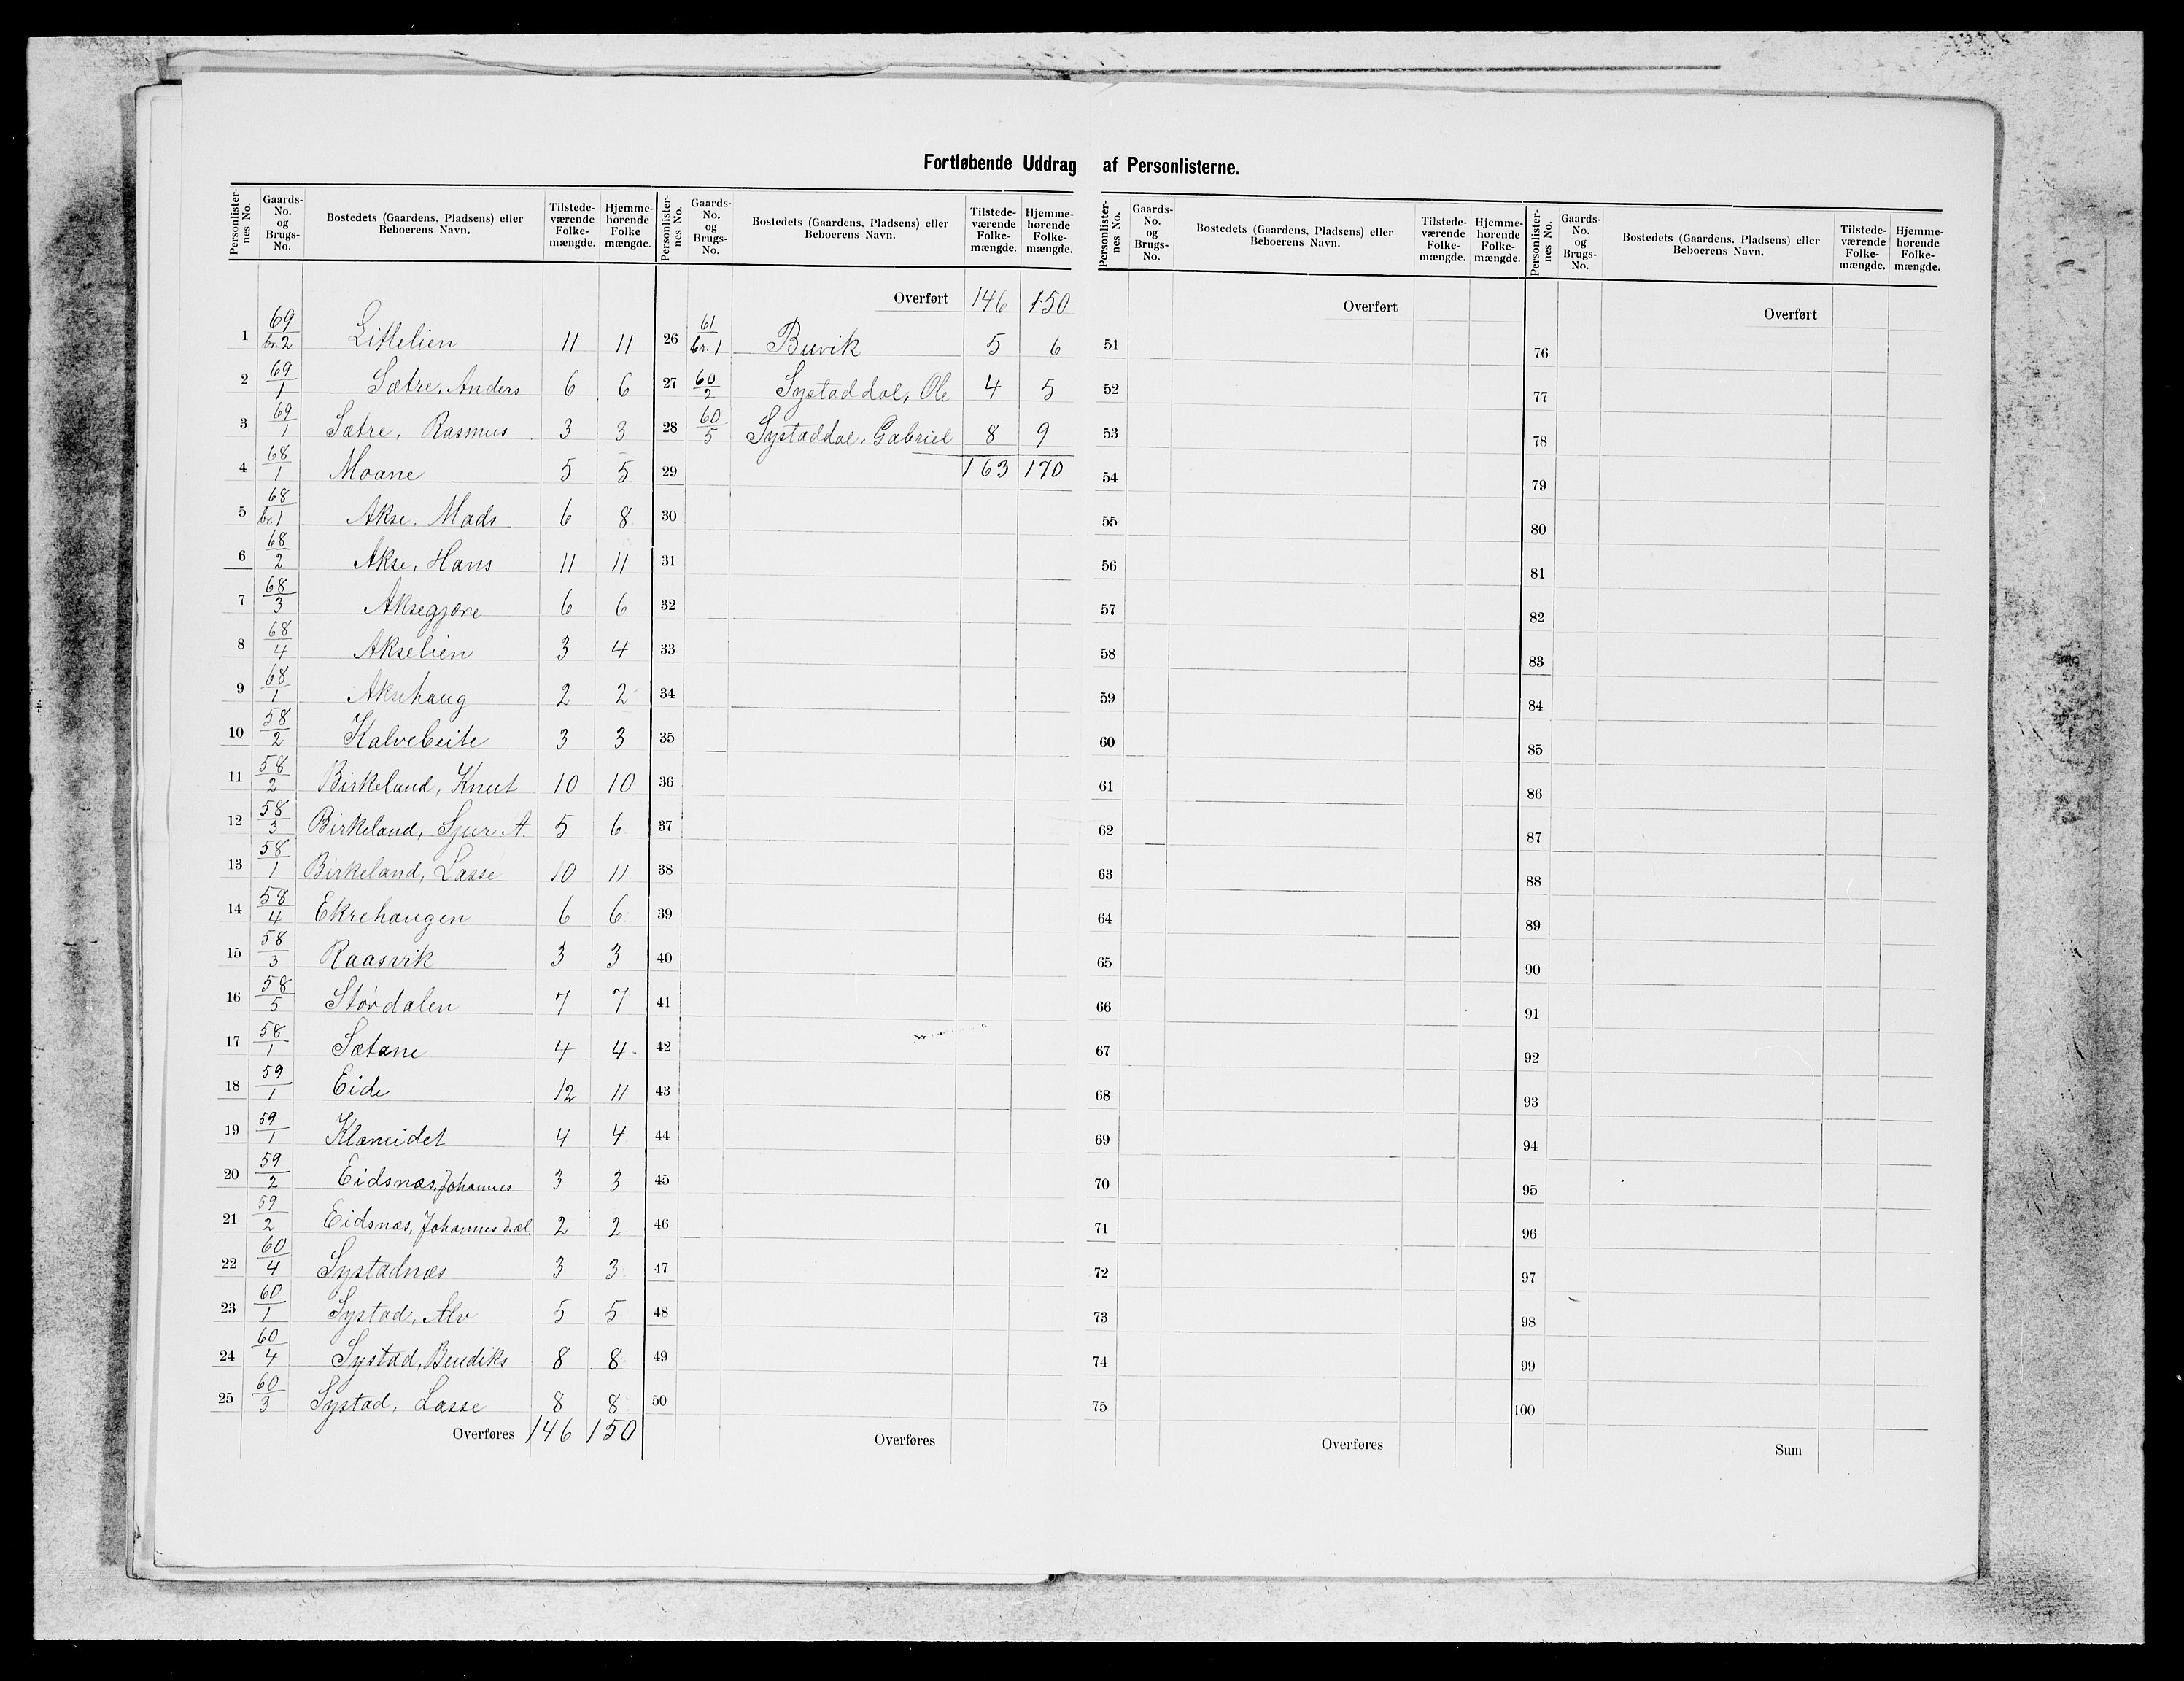 Fortløbende Uddrag af Personlisterne.
Personlister-nes No. | Gaards-No. og Brugs-No. | Bostedets (Gaardens, Pladsens) eller Beboerens Navn. | Tilstede-værende Folke-mængde. | Hjemme-hørende Folke mængde.
1 69/br.2 Litlelien 11 11
2 69/1 Sætre, Anders 6 6
3 69/1 Sætre, Rasmus 3 3
4 68/1 Moane 5 5
5 68/br.1 Akse, Mads 6 8
6 68/2 Akse, Hans 11 11
7 68/3 Aksegjære 6 6
8 68/4 Akselien 3 4
9 68/1 Aksehaug 2 2
10 58/2 Kalvebeite 3 3
11 58/2 Birkeland, Knut 10 10
12 58/3 Birkeland, Sjur A. 5 6
13 58/1 Birkeland, Lasse 10 11
14 58/4 Ekrehaugen 6 6
15 58/3 Raasvik 3 3
16 58/5 Størdalen 7 7
17 58/1 Sætane 4 4
18 59/1 Eide 12 11
19 59/1 Klæmidet 4 4
20 59/2 Eidsnæs, Johannes 3 3
21 59/2 Eidsnæs, Johannes d.æl. 2 2
22 60/4 Systadnæs 3 3
23 60/1 Systad, Alv 5 5
24 60/4 Systad, Bendiks 8 8
25 60/3 Systad, Lasse 8 8
Overføres 146 150
Personlister-nes No. | Gaards-No. og Brugs-No. | Bostedets (Gaardens, Pladsens) eller Beboerens Navn. | Tilstede-værende Folke-mængde. | Hjemme-hørende Folke-mængde.
Overført 146 150
26 61/br.1 Buvik 5 6
27 60/2 Systaddal, Ole 4 5
28 60/5 Systaddal, Gabriel 8 9
29 163 170
30
31
32
33
34
35
36
37
38
39
40
41
42
43
44
45
46
47
48
49
50
Overføres
Personlister-nes No. | Gaards-No. og Brugs-No. | Bostedets (Gaardens, Pladsens) eller Beboerens Navn. | Tilstede-værende Folke-mængde. | Hjemme-hørende Folke-mængde.
Overført
51
52
53
54
55
56
57
58
59
60
61
62
63
64
65
66
67
68
69
70
71
72
73
74
75
Overføres
Personlister-nes No. | Gaards-No. og Brugs-No. | Bostedets (Gaardens, Pladsens) eller Beboerens Navn. | Tilstede-værende Folke-mængde. | Hjemme-hørende Folke-mængde.
Overført
76
77
78
79
80
81
82
83
84
85
86
87
88
89
90
91
92
93
94
95
96
97
98
99
100
Sum